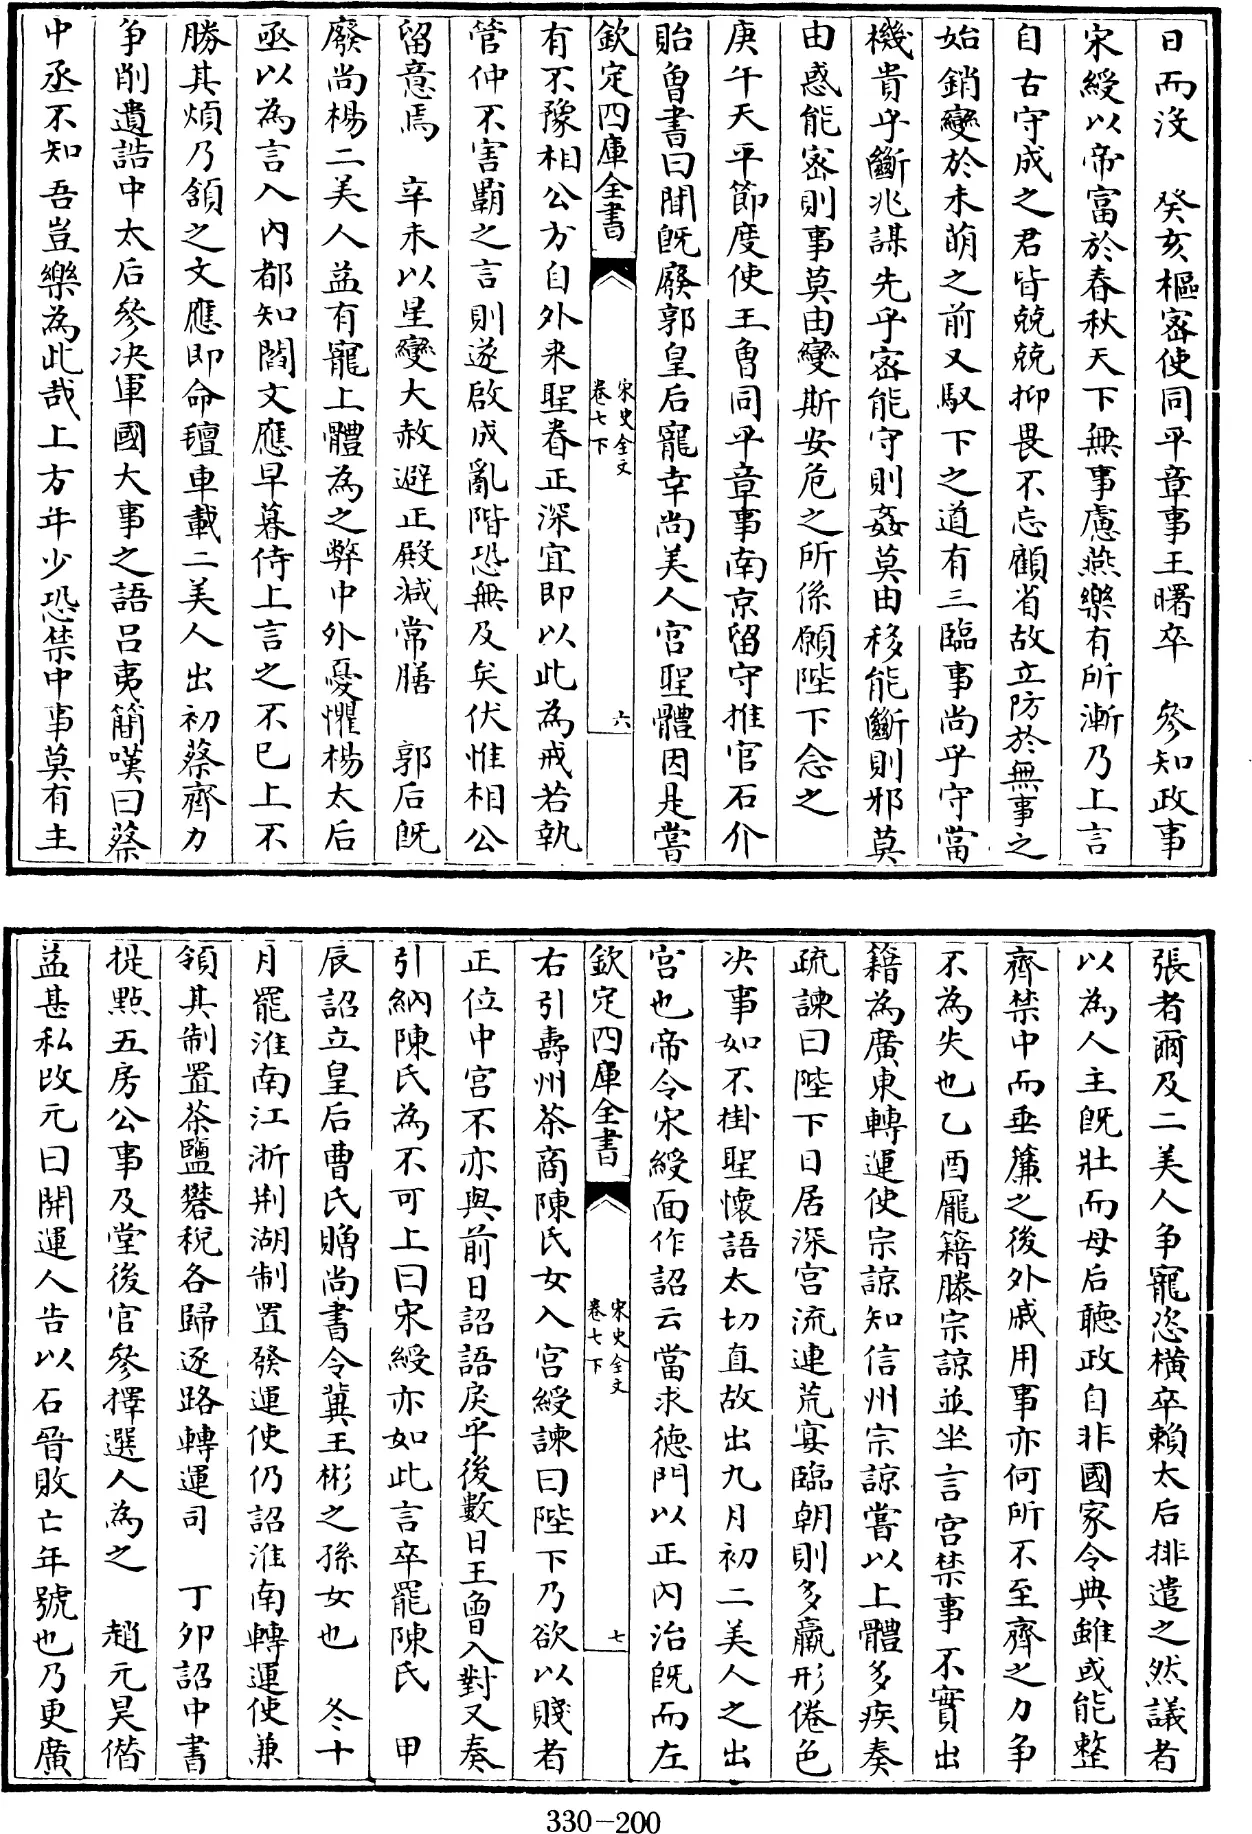 日而沒　癸亥樞宻使同平章事王曙卒　參知政事
宋綬以帝富於春秋天下無事慮燕樂有所漸乃上言
自古守成之君皆兢兢抑畏不忘顧省故立防於無事之
始銷變於未萌之前又馭下之道有三臨事尚乎守當
機貴乎斷兆謀先乎宻能守則姦莫由移能斷則邪莫
由惑能宻則事莫由變斯安危之所係願陛下念之
庚午天平節度使王曾同平章事南京留守推官石介
貽曾書曰聞既廢郭皇后寵幸尚美人宫聖體因是嘗
欽定四庫全書
宋史全文
卷七下
六
有不豫相公方自外来聖眷正深宜即以此為戒若執
管仲不害霸之言則遂啟成亂階恐無及矣伏惟相公
留意焉　辛未以星變大赦避正殿減常膳　郭后既
廢尚楊二美人益有寵上體為之弊中外憂懼楊太后
亟以為言入內都知閻文應早暮侍上言之不已上不
勝其煩乃頷之文應即命氊車載二美人出初蔡齊力
争削遺誥中太后參决軍國大事之語吕夷簡嘆曰蔡
中丞不知吾豈樂為此哉上方年少恐禁中事莫有主
張者爾及二美人争寵恣横卒賴太后排遣之然議者
以為人主既壯而母后聽政自非國家令典雖或能整
齊禁中而垂簾之後外戚用事亦何所不至齊之力争
不為失也乙酉龎籍滕宗諒並坐言宫禁事不實出
籍為廣東轉運使宗諒知信州宗諒嘗以上體多疾奏
疏諫曰陛下日居深宫流連荒宴臨朝則多羸形倦色
决事如不掛聖懷語太切直故出九月初二美人之出
宫也帝令宋綬面作詔云當求徳門以正內治既而左
欽定四庫全書
宋史全文
卷七下
七
右引壽州茶商陳氏女入宫綬諫曰陛下乃欲以賤者
正位中宫不亦與前日詔語戾乎後數日王曾入對又奏
引納陳氏為不可上曰宋綬亦如此言卒罷陳氏　甲
辰詔立皇后曹氏贈尚書令冀王彬之孫女也　冬十
月罷淮南江浙荆湖制置發運使仍詔淮南轉運使兼
領其制置茶鹽礬稅各歸逐路轉運司　丁卯詔中書
提點五房公事及堂後官參擇選人為之　趙元昊僭
益甚私改元曰開運人告以石晉敗亡年號也乃更廣
330-200